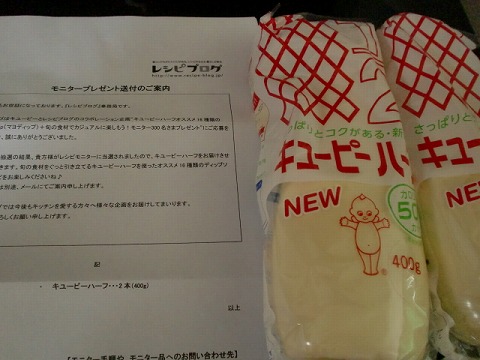 レシピブログ
http://www.recipe-blog.jp/
モニタープレゼント送付のご案内
お世話になっております。『レシピブログ』事務局です。
はキューピーとレシピブログのコラボレーション企画"キューピーハーフオススメ 16 種類の
(マヨディップ)+旬の食材でカジュアルに楽しもう!モニター300名さまプレゼント"にご応募を
誠にありがとうございました。
抽選の結果、貴方様がレシピモニターに当選されましたので、キューピーハーフをお届けさせ
きます。旬の食材をぐっと引き立てるキューピーハーフを使ったオススメ 16 種類のディップソ
をお楽しみくださいね♪
は別途、メールにてご案内申し上げます。
では今後もキッチンを愛する方々へ様々な企画をお届けしてまいります。
ろしくお願い申し上げます。
記
・ キューピーハーフ・・・2 本(400g)
以上
【モニター手順や、モニター品へのお問い合わせ先】
さっぱりとコクがある・新
キューピーハー
NEW
カロ
50
400g
さっぱりと
キュー
NEW